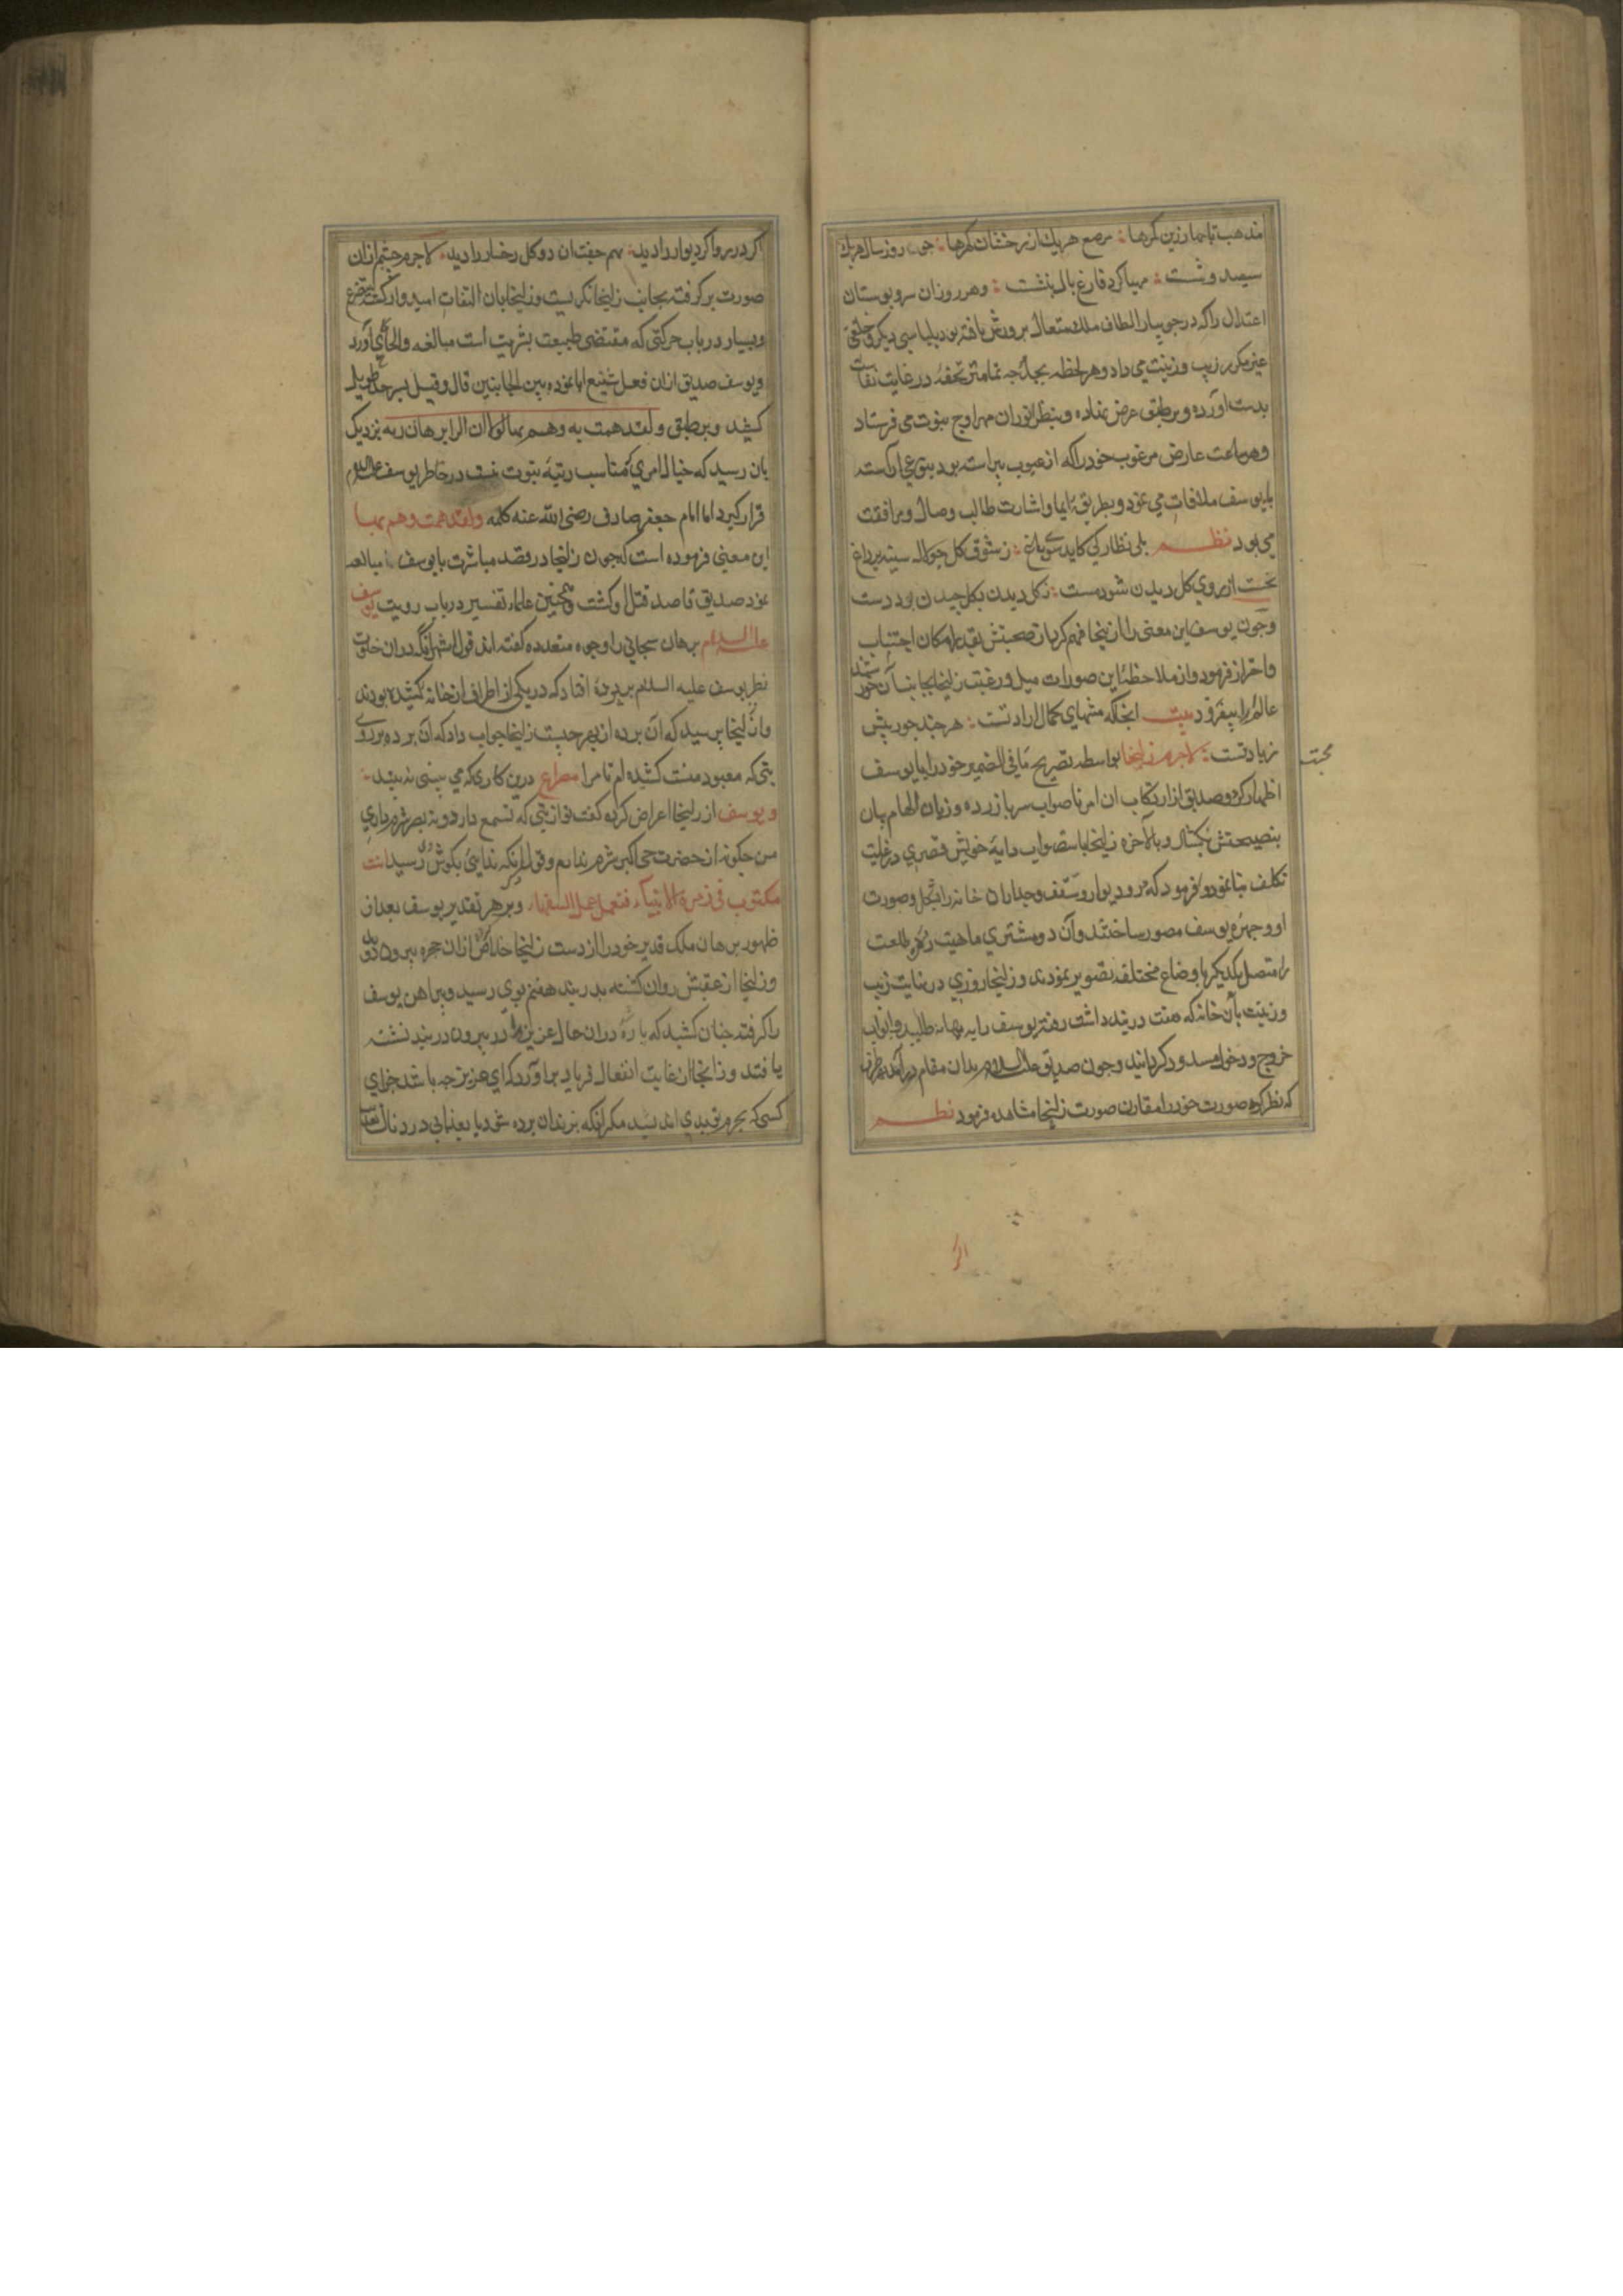 مذهب تاجها زرین کمرها : مرصع هر یك از درخشان کهرها : چون روز سال هر یك
سیصد و شست : مهیا کرد فارغ بال بنشست : و هر روز ان سرو بوستان
اعتدال را که در جویبار الطاف ملك متعال پرورش یافته بود بلباسی دیکر و خلعتی
غیر مکرر زیب و زینت می داد و هر لحظه بجد هر چه تمامتر تحفهٔ در غایت نفاست
بدست آورده و بر طبق عرض نهاده و بنظر انور ان مهر اوج نبوت می فرستاد
و هر ساعت عارض مرغوب خود را که از عیوب پیراسته بود بنوعی اراسته
با یوسف ملاقات می نمود و بطریق ایما و اشارت طالب وصال و مرافقت
می بود نظم بلی نظارکی کاید سوی باغ : ز شوق کل چو لاله سینه پر داغ
نخست از روی کل دیدن شود مست : ز کل دیدن بکل چیدن برد دست
و چون یوسف این معنی را از زلیخا فهم کرد از صحبتش بقدر امکان اجتناب
و احتراز فرمود و از ملاحظهٔ این صورت میل و رغبت زلیخا بجانب آن خورشید
عالم را بیفزود بیت انجا که منتهای کمال ارادتست : هر چند جور بیش
محبت
زیادتست : لاجرم زلیخا بواسطه تصریح ما فی الضمیر خود را با یوسف
اظهار کرد و صدیق از ارتکاب ان امر ناصواب سر باز زده و زبان الهام بیان
بنصیحتش بکشاد و بالاخره زلیخا باستصواب دایهٔ خویش قصری در غایت
تکلف بنا نمود و فرمود که در و دیوار و سقف و جداران خانه را بشکل و صورت
او و چهرهٔ یوسف مصور ساختند و آن دو مشتری ماهیت زهره طلعت
را متصل یکدیکر باوضاع مختلفه تصویر نمودند و زلیخا روزی در نهایت زیب
و زینت بآن خانه که هفت دربند داشت رفته یوسف را به بهانه طلبید و ابواب
خروج و دخول مسدود کردانید و چون صدیق علیه السلام بدان مقام درآمد بهر طرف
که نظر کرد صورت خود را مقارن صورت زلیخا مشاهده فرمود نظم
اکر در را و اکر دیوار را دید : بهم جفت ان دو کل رخسار را دید : لاجرم چشم از ان
صورت بر کرفته بجانب زلیخا نکریست و زلیخا بان التفات امیدوار کشته تضرع
و بسیار در باب حرکتی که مقتضی طبیعت بشریت است مبالغه و الحاح بجای آورد
و یوسف صدیق ازان فعل شنیع ابا نموده بین الجانبین قال و قیل بسر حد تطویل
کشید و بر طبق و لقد همت به و هم بها لولا ان را برهان ربه نزدیک
بان رسید که خیال امری که مناسب رتبهٔ نبوت نیست در خاطر یوسف علیه السلام
قرار کیرد اما امام جعفر صادق رضی الله عنه کلمه و لقد همت و هم بها
این معنی فرموده است که چون زلیخا در قصد مباشرت با یوسف مبالغه
نمود صدیق قاصد قتل او کشت و همچنین علماء تفسیر در باب رویت یوسف
علیه السلام برهان سبحانی را وجوه متعدده کفته اند قول اشهر آنکه در ان خلوت
نظر یوسف علیه السلام بر پردهٔ افتاد که در یکی از اطراف ان خانه کشیده بودند
و از زلیخا پرسید که آن پرده از بهر چیست زلیخا جواب داد که آن پرده بر روی
بتی که معبود منست کشیده ام تا مرا مصراع درین کاری که می بینی نه بیند :
و یوسف از زلیخا اعراض کرده کفت تو از بتی که نه سمع دارد و نه بصر شرم داری
من چکونه از حضرت حی اکبر شرم ندارم و قول آنکه ندایی بکوش وی رسید انت
مکتوب فی زمرة الانبیاء فتعمل عمل السفهاء و بر هر تقدیر یوسف بعد از
ظهور برهان ملک قدیر خود را از دست زلیخا خلاص کرد ازان حجره بیرون دوید
و زلیخا از عقبش روان کشته بدربند هفتم بوی رسید و پیراهن یوسف
را کرفته چنان کشید که پاره شد در ان حال عزیز را در بیرون دربند نشسته
یافتند و زلیخا از غایت انفعال فریاد بر اورد که ای عزیز چه باشد جزای
کسی که بحرم تو بدی اندیشد مکر آنکه بزندان برده شود یا بعذابی دردناك